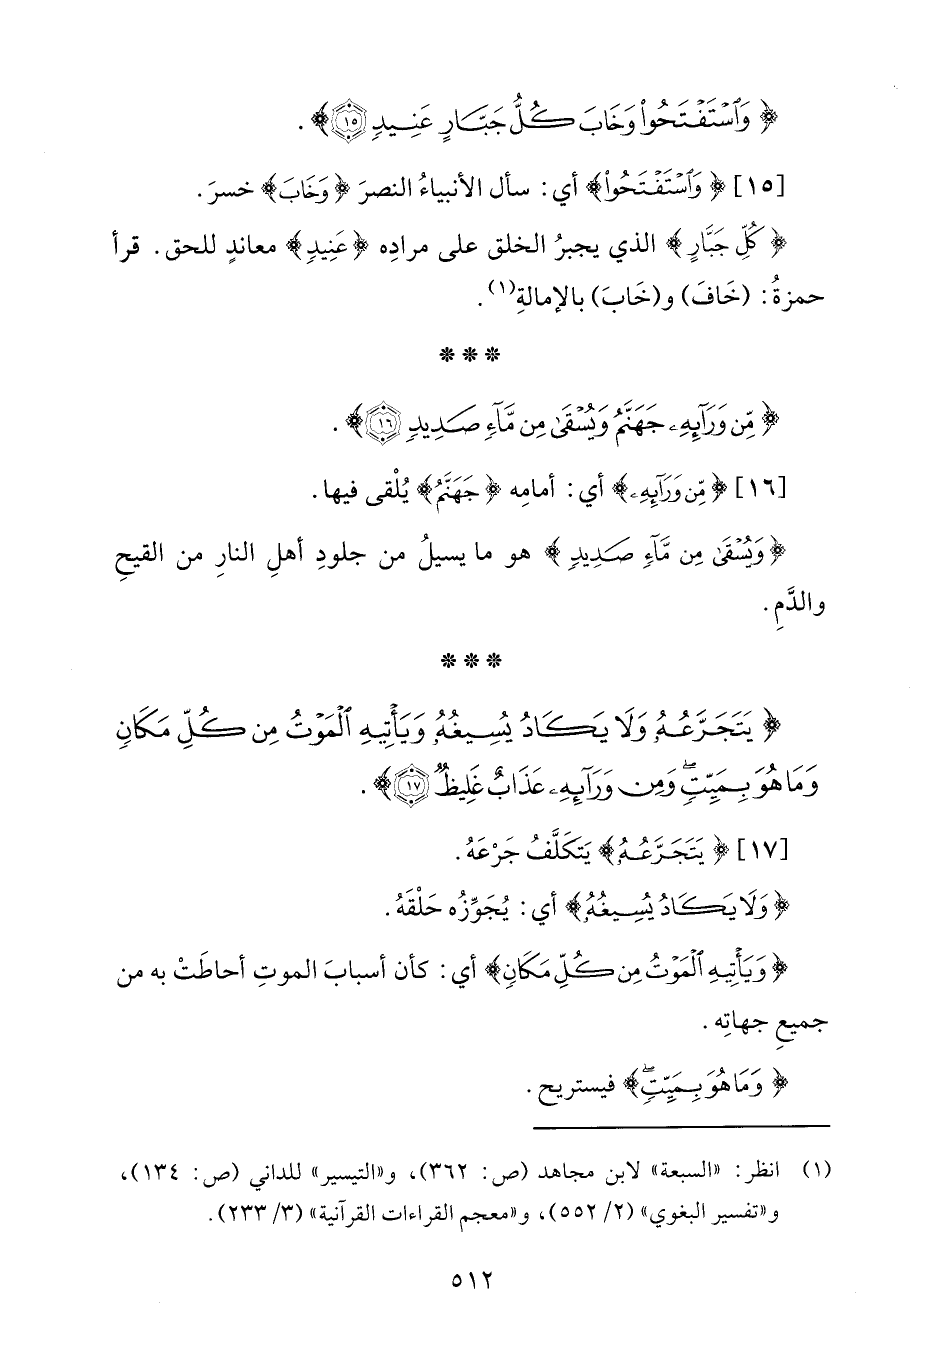 ﴿ وَٱسۡتَفۡتَحُواْ وَخَابَ كُلُّ جَبَّارٍ عَنِيدٖ ١٥﴾ .
[١٥] ﴿ وَٱسۡتَفۡتَحُواْ﴾ أي: سأل الأنبياءُ النصرَ ﴿ وَخَابَ﴾ خسرَ.
﴿ كُلِّ جَبَّارٍ﴾ الذي يجبرُ الخلق على مرادِه ﴿عَنِيدٍ﴾ معاندٍ للحق. قرأ
حمزةُ: (خَافَ) و(خَابَ) بالإمالةِ(١).
* * *
﴿ مِّن وَرَآئِهِۦ جَهَنَّمُ وَيُسۡقَىٰ مِن مَّآءٖ صَدِيدٖ ١٦﴾ .
[١٦] ﴿مِّن وَرَآئِهِۦ﴾ أي: أمامِه ﴿جَهَنَّمُ﴾ يُلْقى فيها.
﴿وَيُسۡقَىٰ مِن مَّآءٖ صَدِيدٖ ﴾ هو ما يسيلُ من جلودِ أهلِ النارِ من القيحِ
والدَّمِ.
* * *
﴿ يَتَجَرَّعُهُۥ وَلَا يَكَادُ يُسِيغُهُۥ وَيَأۡتِيهِ ٱلۡمَوۡتُ مِن كُلِّ مَكَانٖ
وَمَا هُوَ بِمَيِّتٖۖ وَمِن وَرَآئِهِۦ عَذَابٌ غَلِيظٞ ١٧﴾ .
[١٧] ﴿ يَتَجَرَّعُهُۥ﴾ يَتَكَلَّفُ جَرْعَهُ.
﴿وَلَا يَكَادُ يُسِيغُهُۥ﴾ أي: يُجَوِّزُه حَلْقَهُ.
﴿ وَيَأۡتِيهِ ٱلۡمَوۡتُ مِن كُلِّ مَكَانٖ﴾ أي: كأن أسبابَ الموتِ أحاطَتْ به من
جميعِ جهاتِه .
﴿ وَمَا هُوَ بِمَيِّتٖۖ﴾ فيستريح .
(١) انظر: «السبعة» لابن مجاهد (ص: ٣٦٢)، و«التيسير» للداني (ص: ١٣٤)،
و«تفسير البغوي» (٢/ ٥٥٢)، و«معجم القراءات القرآنية» (٣/ ٢٣٣).
٥١٢